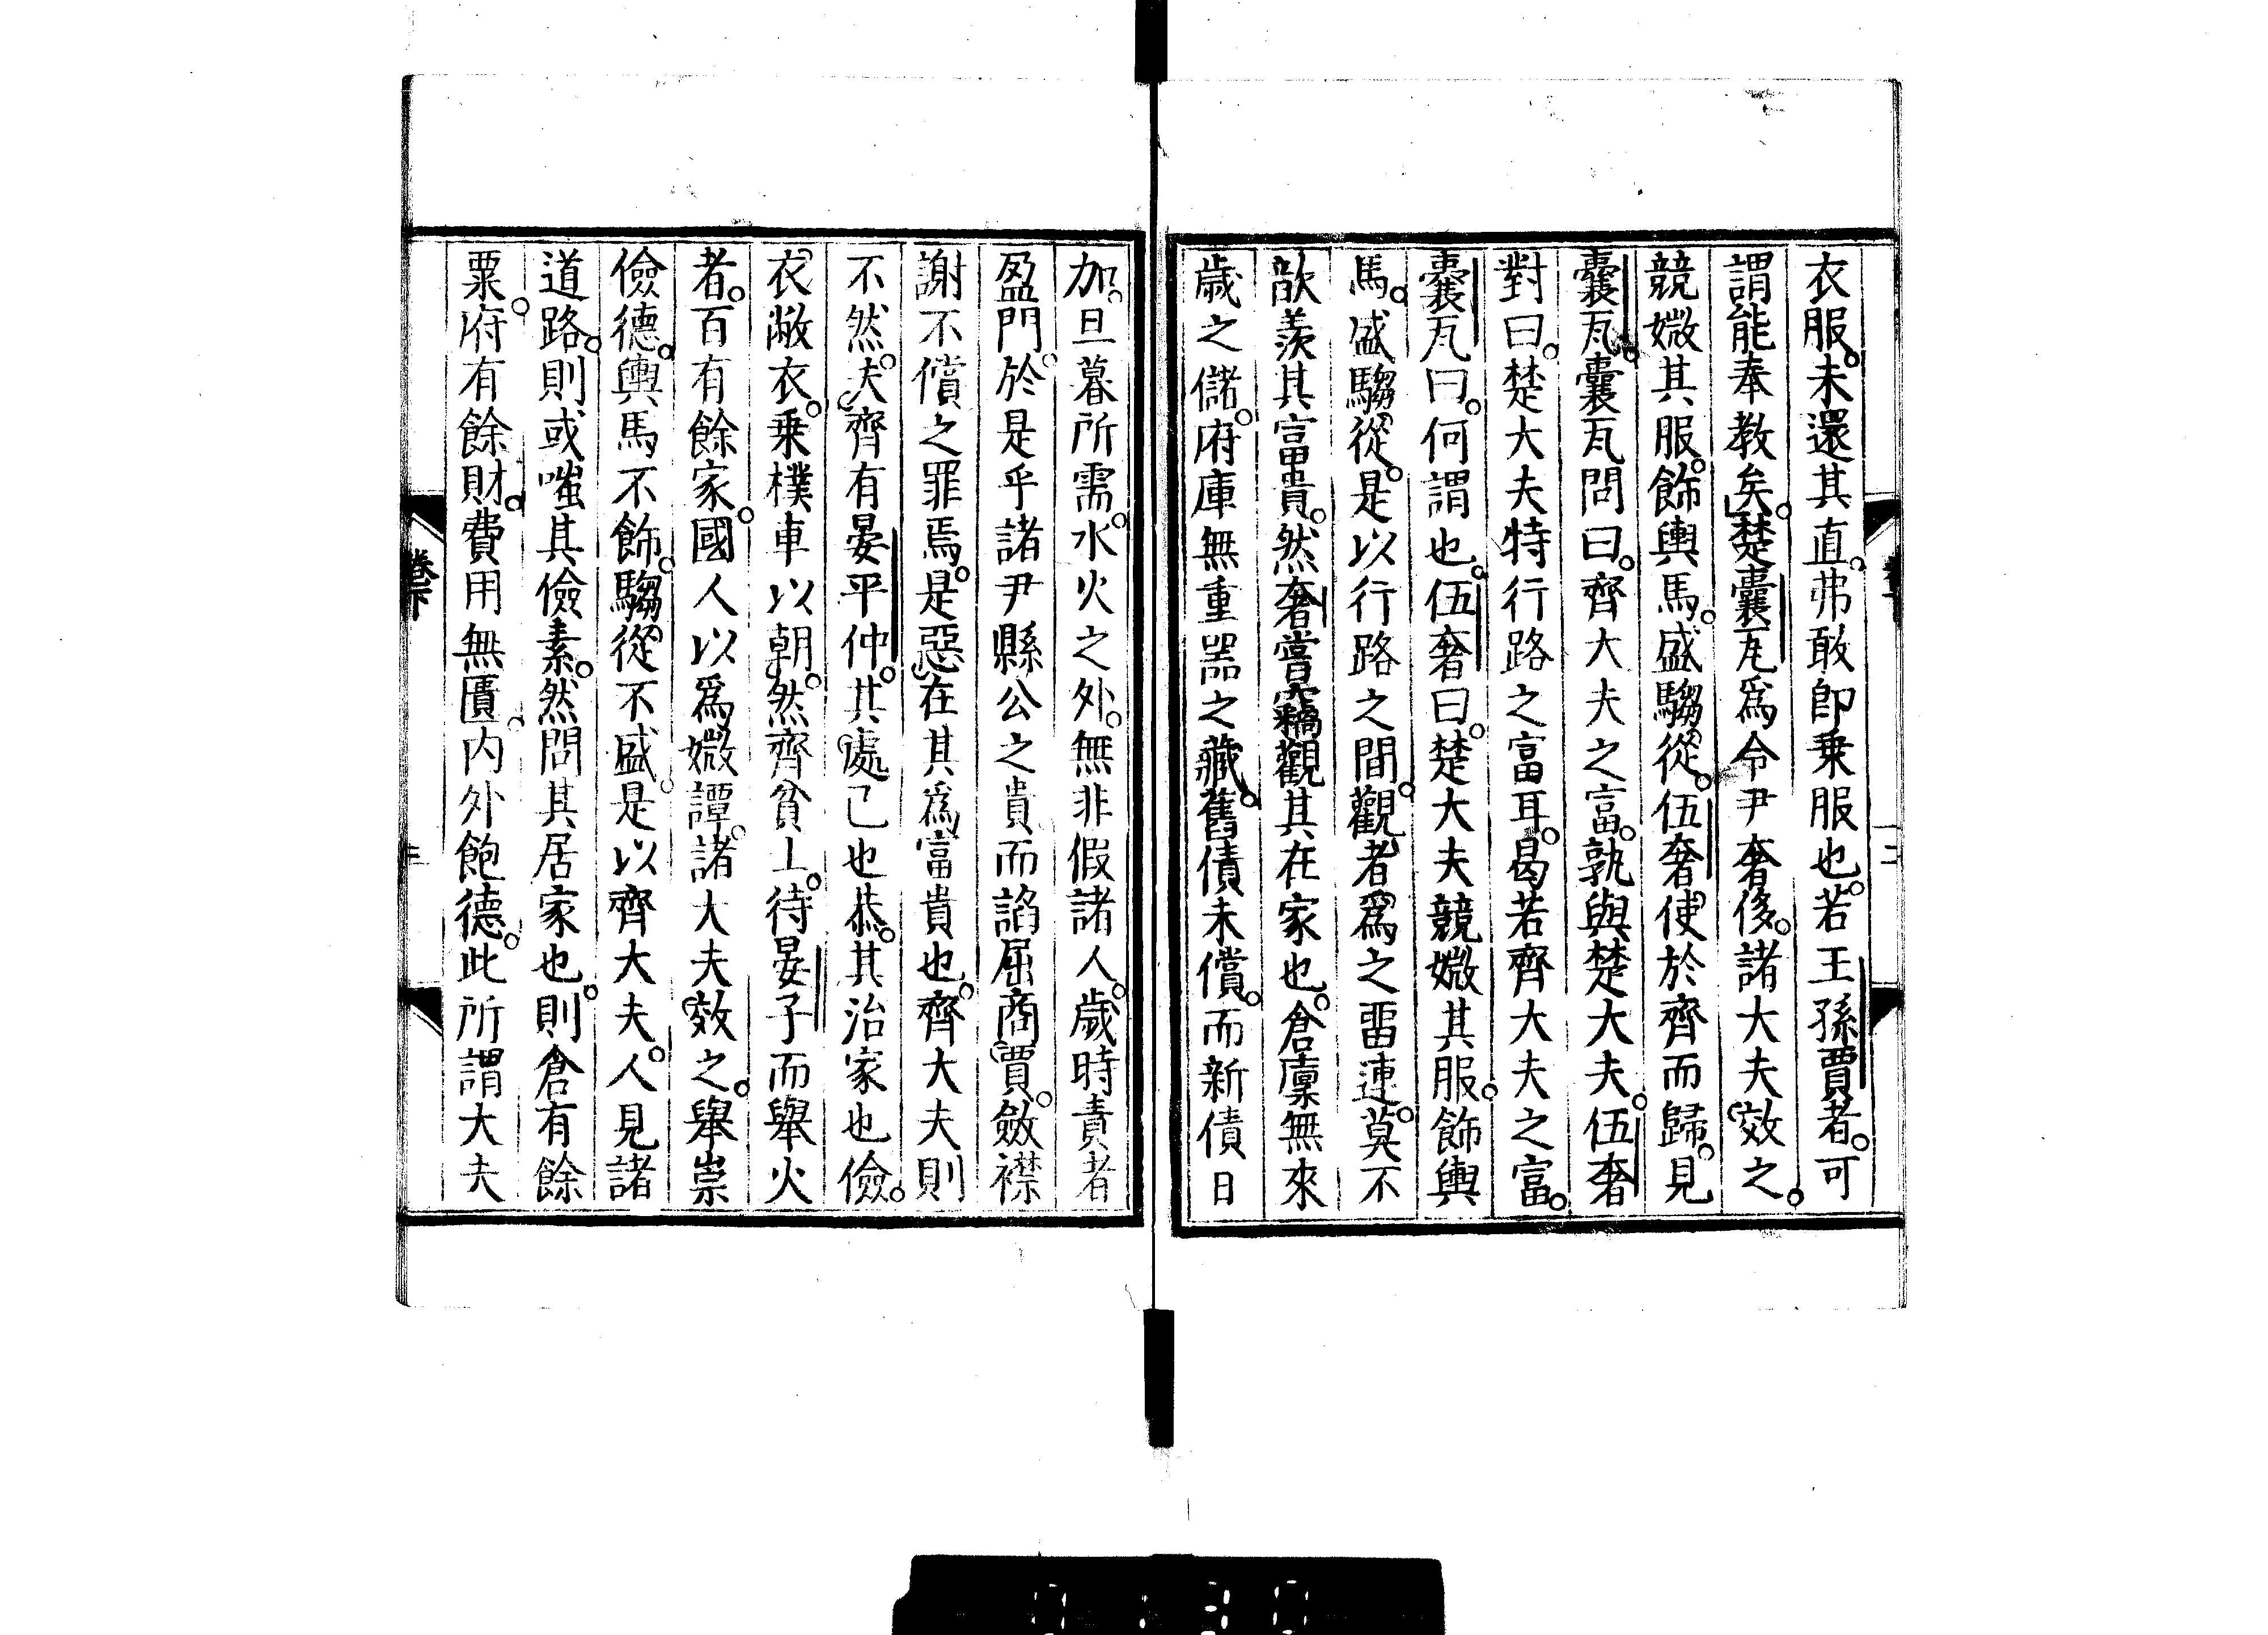 衣服。未還其直。弗敢卽乗服也。若王孫賈者。可
謂能奉教矣。楚囊瓦爲令尹奢侈。諸大夫效之。
競媺其服。飾輿馬。盛騶從。伍奢使於齊而歸。見
囊瓦。囊瓦問曰。齊大夫之富。孰與楚大夫。伍奢
對曰。楚大夫特行路之富耳。曷若齊大夫之富。
囊瓦曰。何謂也。伍奢曰。楚大夫競媺其服。飾輿
馬。盛騶從。是以行路之間。觀者爲之畱連。莫不
歆羨其富貴。然奢嘗竊觀其在家也。倉廩無來
歲之儲。府庫無重器之藏。舊債未償。而新債日
加。旦暮所需。水火之外。無非假諸人。歲時責者
盈門。於是乎諸尹縣公之貴而謟屈商賈。斂襟
謝不償之罪焉。是惡在其爲富貴也。齊大夫則
不然。夫齊有晏平仲。其處己也恭。其治家也儉。
衣敝衣。乗樸車以朝。然齊貧士。待晏子而舉火
者。百有餘家。國人以爲媺譚。諸大夫效之。舉崇
儉德。輿馬不飾。騶從不盛。是以齊大夫。人見諸
道路。則或嗤其儉素。然問其居家也。則倉有餘
粟。府有餘財。費用無匱。内外飽德。此所謂大夫
卷下